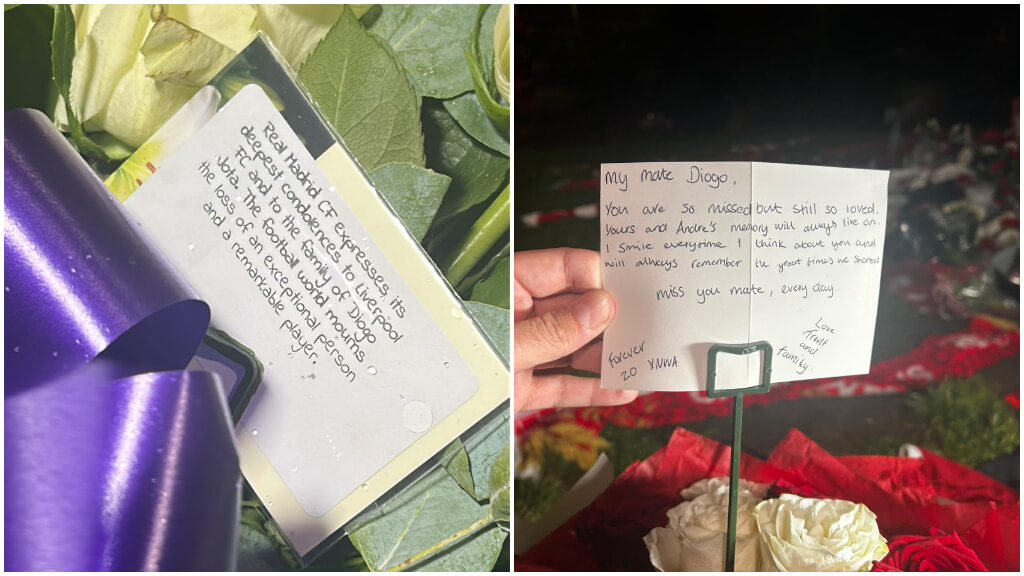 Real Madrid CF expresses its
deepest condolences to Liverpool
FC and to the family of Diogo
Jota. The football world mourns
the loss of an exceptional person
and a remarkable player.
My mate Diogo,
You are so missed but still so loved.
Yours and Andre's memory will always live on.
I smile everytime I think about you and
will always remember the great times we shared
miss you mate, every day.
Love
Trent
and
family.
Forever
20 YNWA